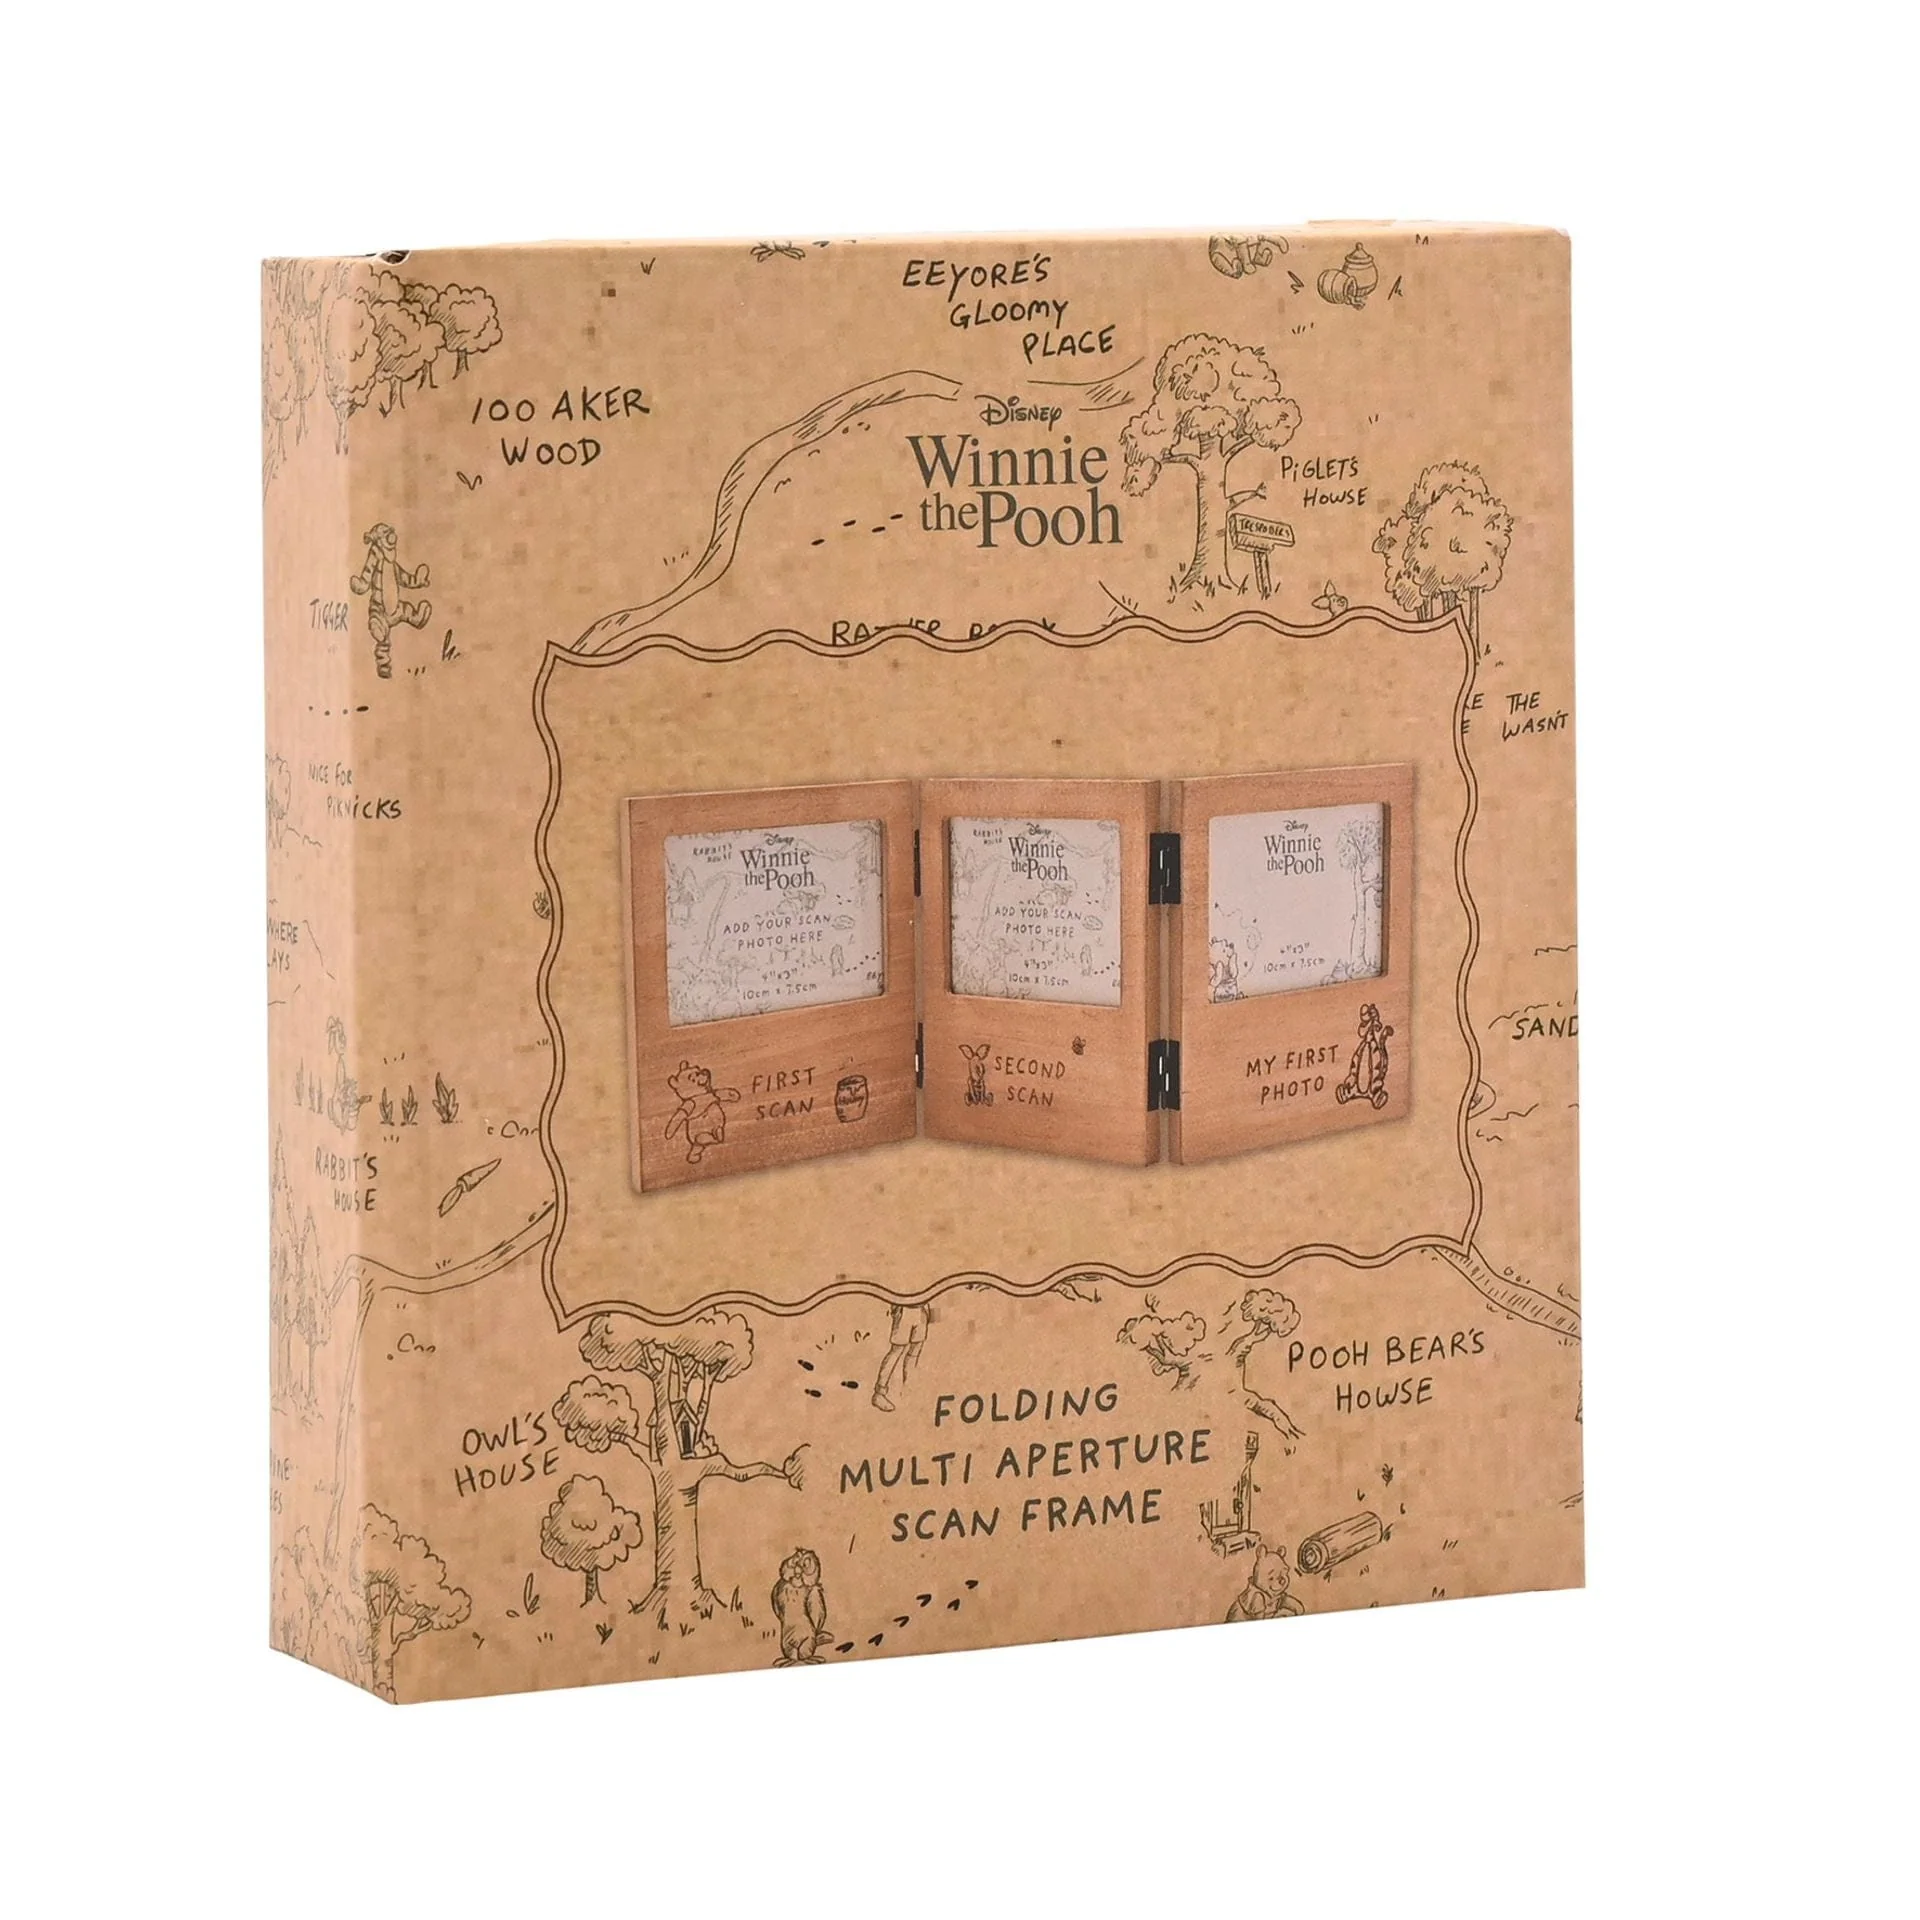 EEYORE'S
GLOOMY
PLACE
100 AKER
WOOD
Disney
Winnie
the Pooh
PiGLET'S
HOWSE
TIGGER
THE
WASN'T
NICE FOR
PIKNICKS
Disney
Winnie
the Pooh
RABBIT'S
HOUSE
ADD YOUR SCAN
PHOTO HERE
4"x3"
10cm x 7.5cm
FIRST
SCAN
Disney
Winnie
the Pooh
RABBIT'S
HOUSE
ADD YOUR SCAN
PHOTO HERE
4"x3"
10cm x 7.5cm
SECOND
SCAN
Disney
Winnie
the Pooh
4"x3"
10cm x 7.5cm
MY FIRST
PHOTO
SAND
RABBIT'S
HOUSE
POOH BEAR'S
HOWSE
OWL'S
HOUSE
FOLDING
MULTI APERTURE
SCAN FRAME